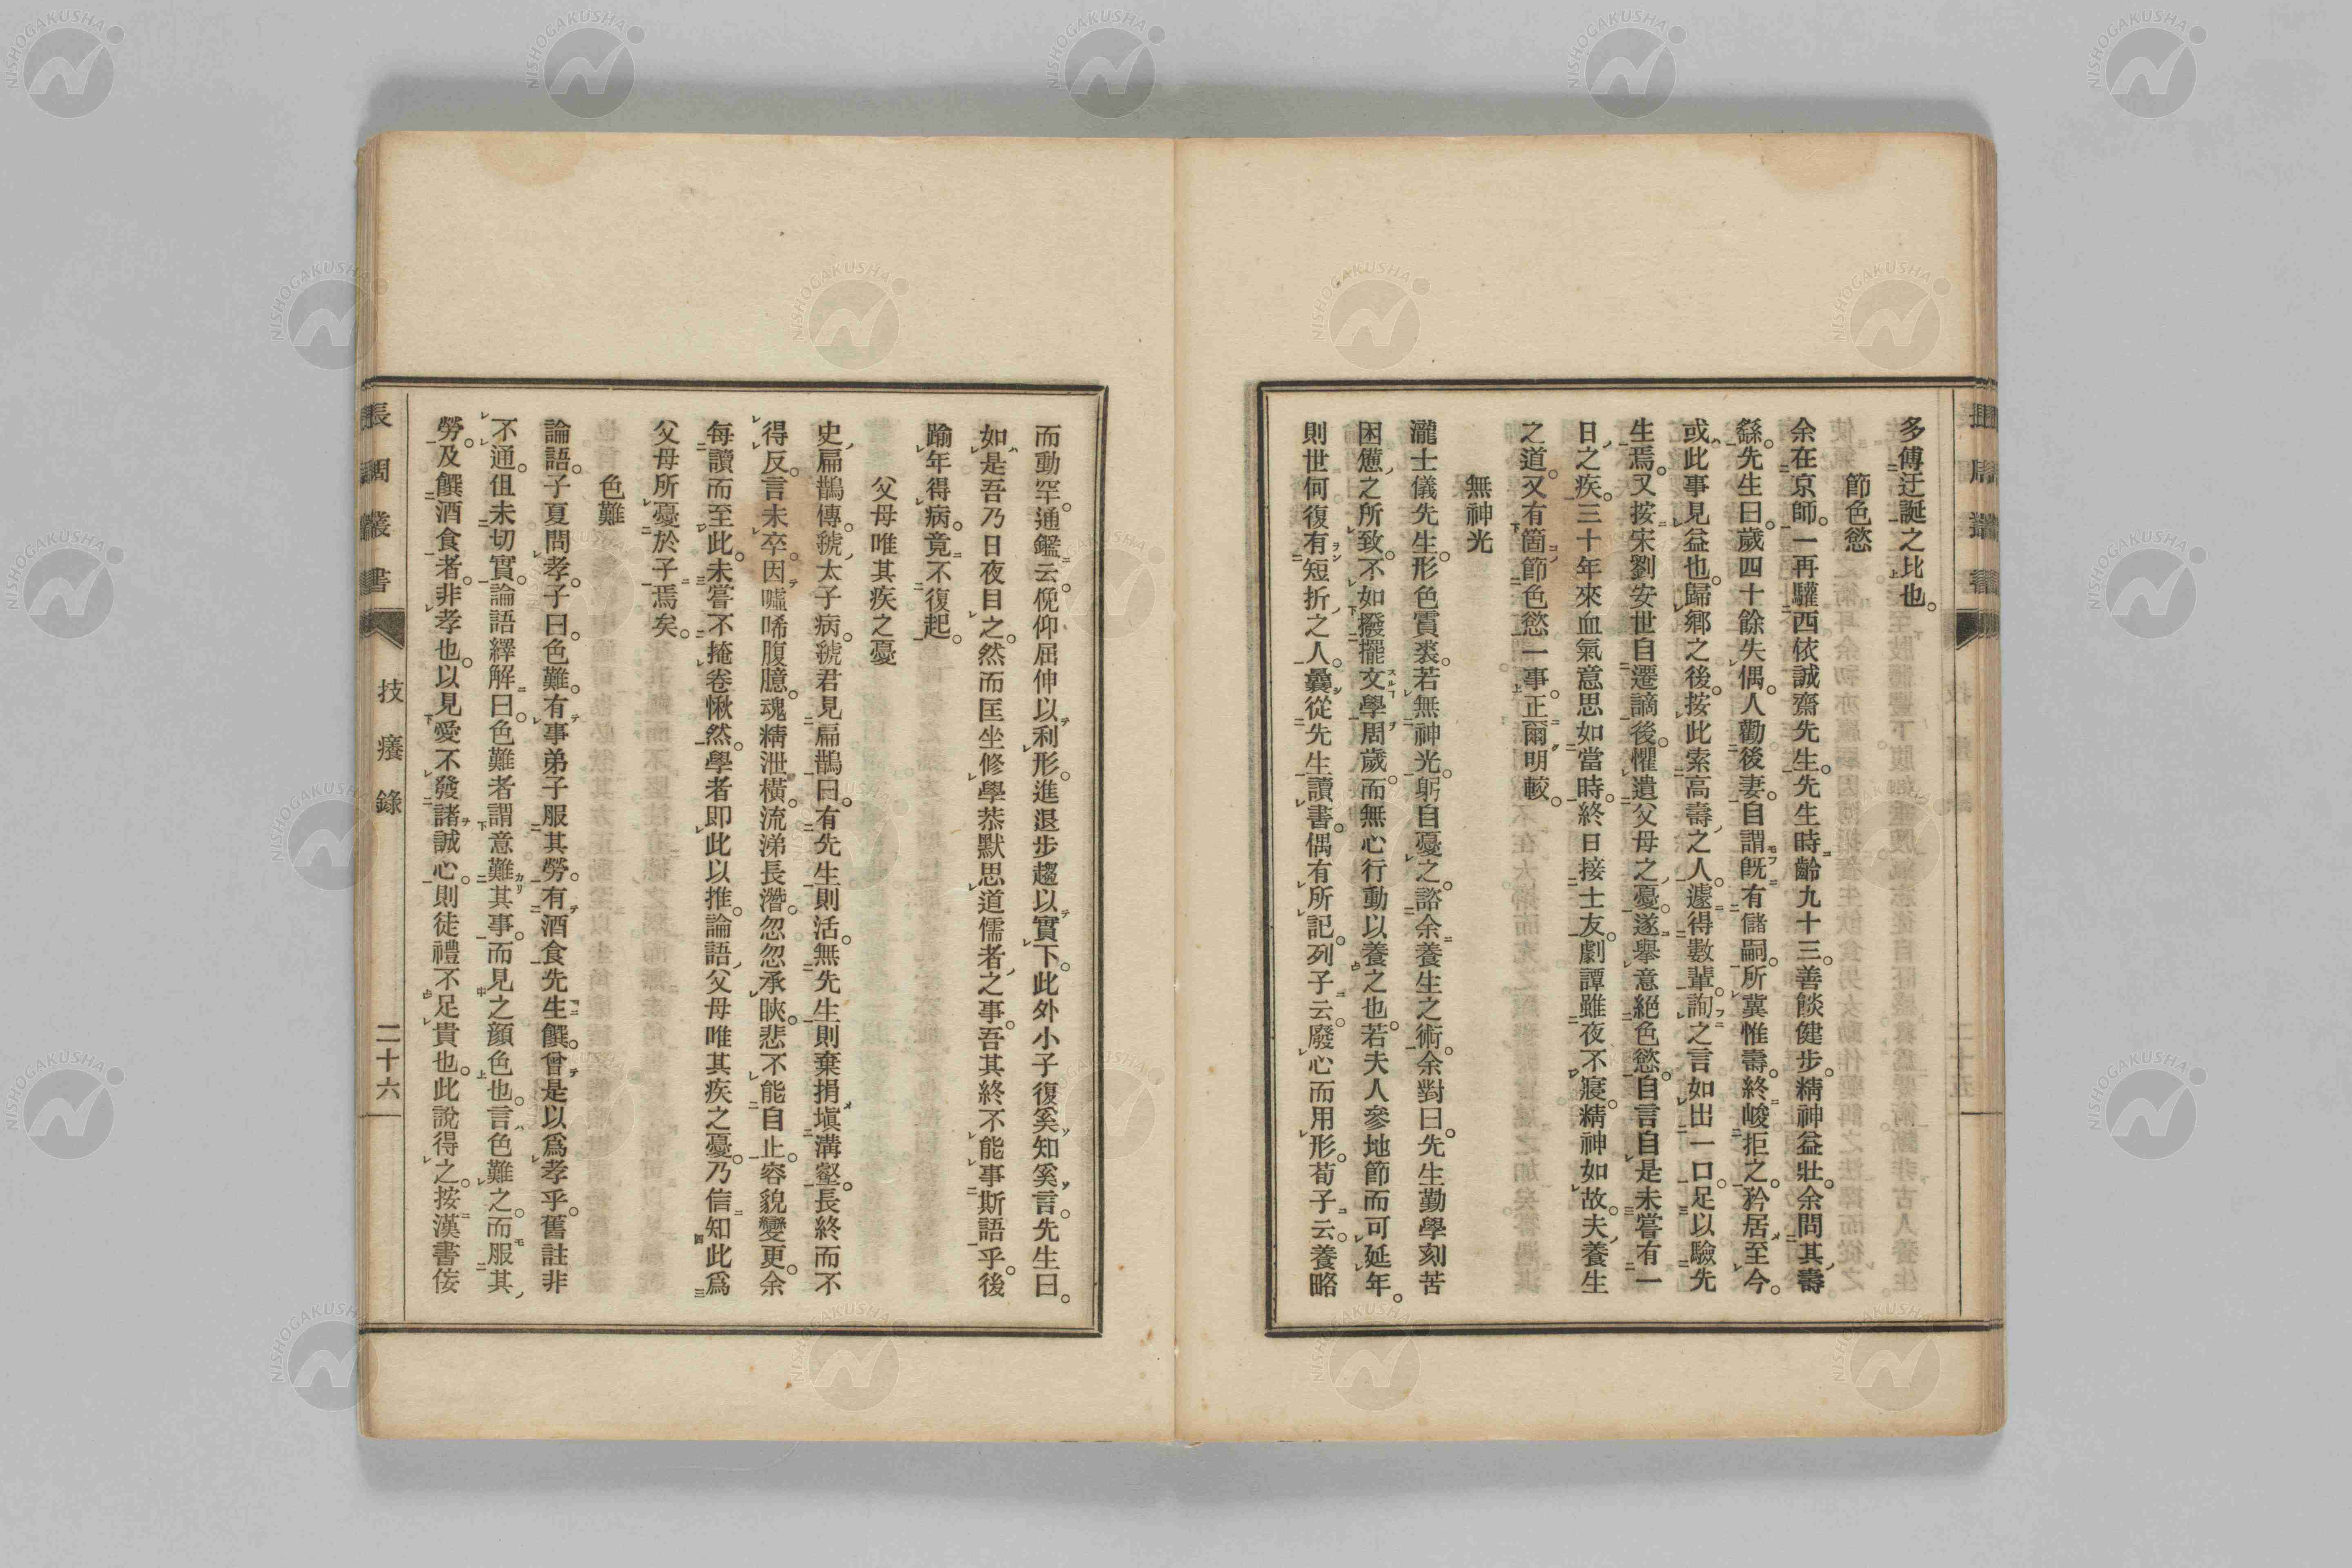 多傅迂誕之比也。
節色慾
余在京師。一再驩西依誠齋先生。先生時齡九十三。善餤健步。精神益壯。余問其壽
繇。先生曰。歲四十餘失偶。人勸後妻。自謂既有儲嗣。所冀惟壽。終峻拒之。矜居至今。
或此事見益也。歸鄉之後。按此索高壽之人。遽得數輩。詢之言如出一口。足以驗先
生焉。又按宋劉安世自遷謫後。懼遺父母之憂。遂擧意絕色慾。自言自是未嘗有一
日之疾。三十年來血氣意思如當時。終日接士友。劇譚雖夜不寢。精神如故。夫養生
之道。又有箇節色慾一事。正爾明較。
無神光
瀧士儀先生。形色寘裘。若無神光。躬自憂之。諮余養生之術。余對曰。先生勤學刻苦
困憊之所致。不如撥擺文學周歲。而無心行動以養之也。若夫人參地節而可延年。
則世何復有短折之人。曩從先生讀書。偶有所記。列子云。廢心而用形。荀子云。養略
而動罕。通鑑云。俛仰屈伸以利形。進退步趨以實下。此外小子復奚知奚言。先生曰。
如是吾乃日夜目之。然而匡坐修學。恭默思道。儒者之事。吾其終不能事斯語乎。後
踰年得病。竟不復起。
父母唯其疾之憂
史扁鵲傳。虢太子病。虢君見扁鵲曰。有先生則活。無先生則棄捐塡溝壑。長終而不
得反。言未卒。因噓唏腹臆。魂精泄橫。流涕長潸。忽忽承䀹。悲不能自止。容貌變更。余
每讀而至此。未嘗不掩卷愀然。學者即此以推。論語父母唯其疾之憂。乃信知此爲
父母所憂於子焉矣。
色難
論語。子夏問孝。子曰。色難。有事弟子服其勞。有酒食先生饌。曾是以爲孝乎。舊註非
不通。但未切實。論語繹解曰。色難者。謂意難其事。而見之顏色也。言色難之。而服其
勞。及饌酒食者。非孝也。以見愛不發諸誠心。則徒禮不足貴也。此說得之。按漢書侫
長周叢書
技癢錄
二十六